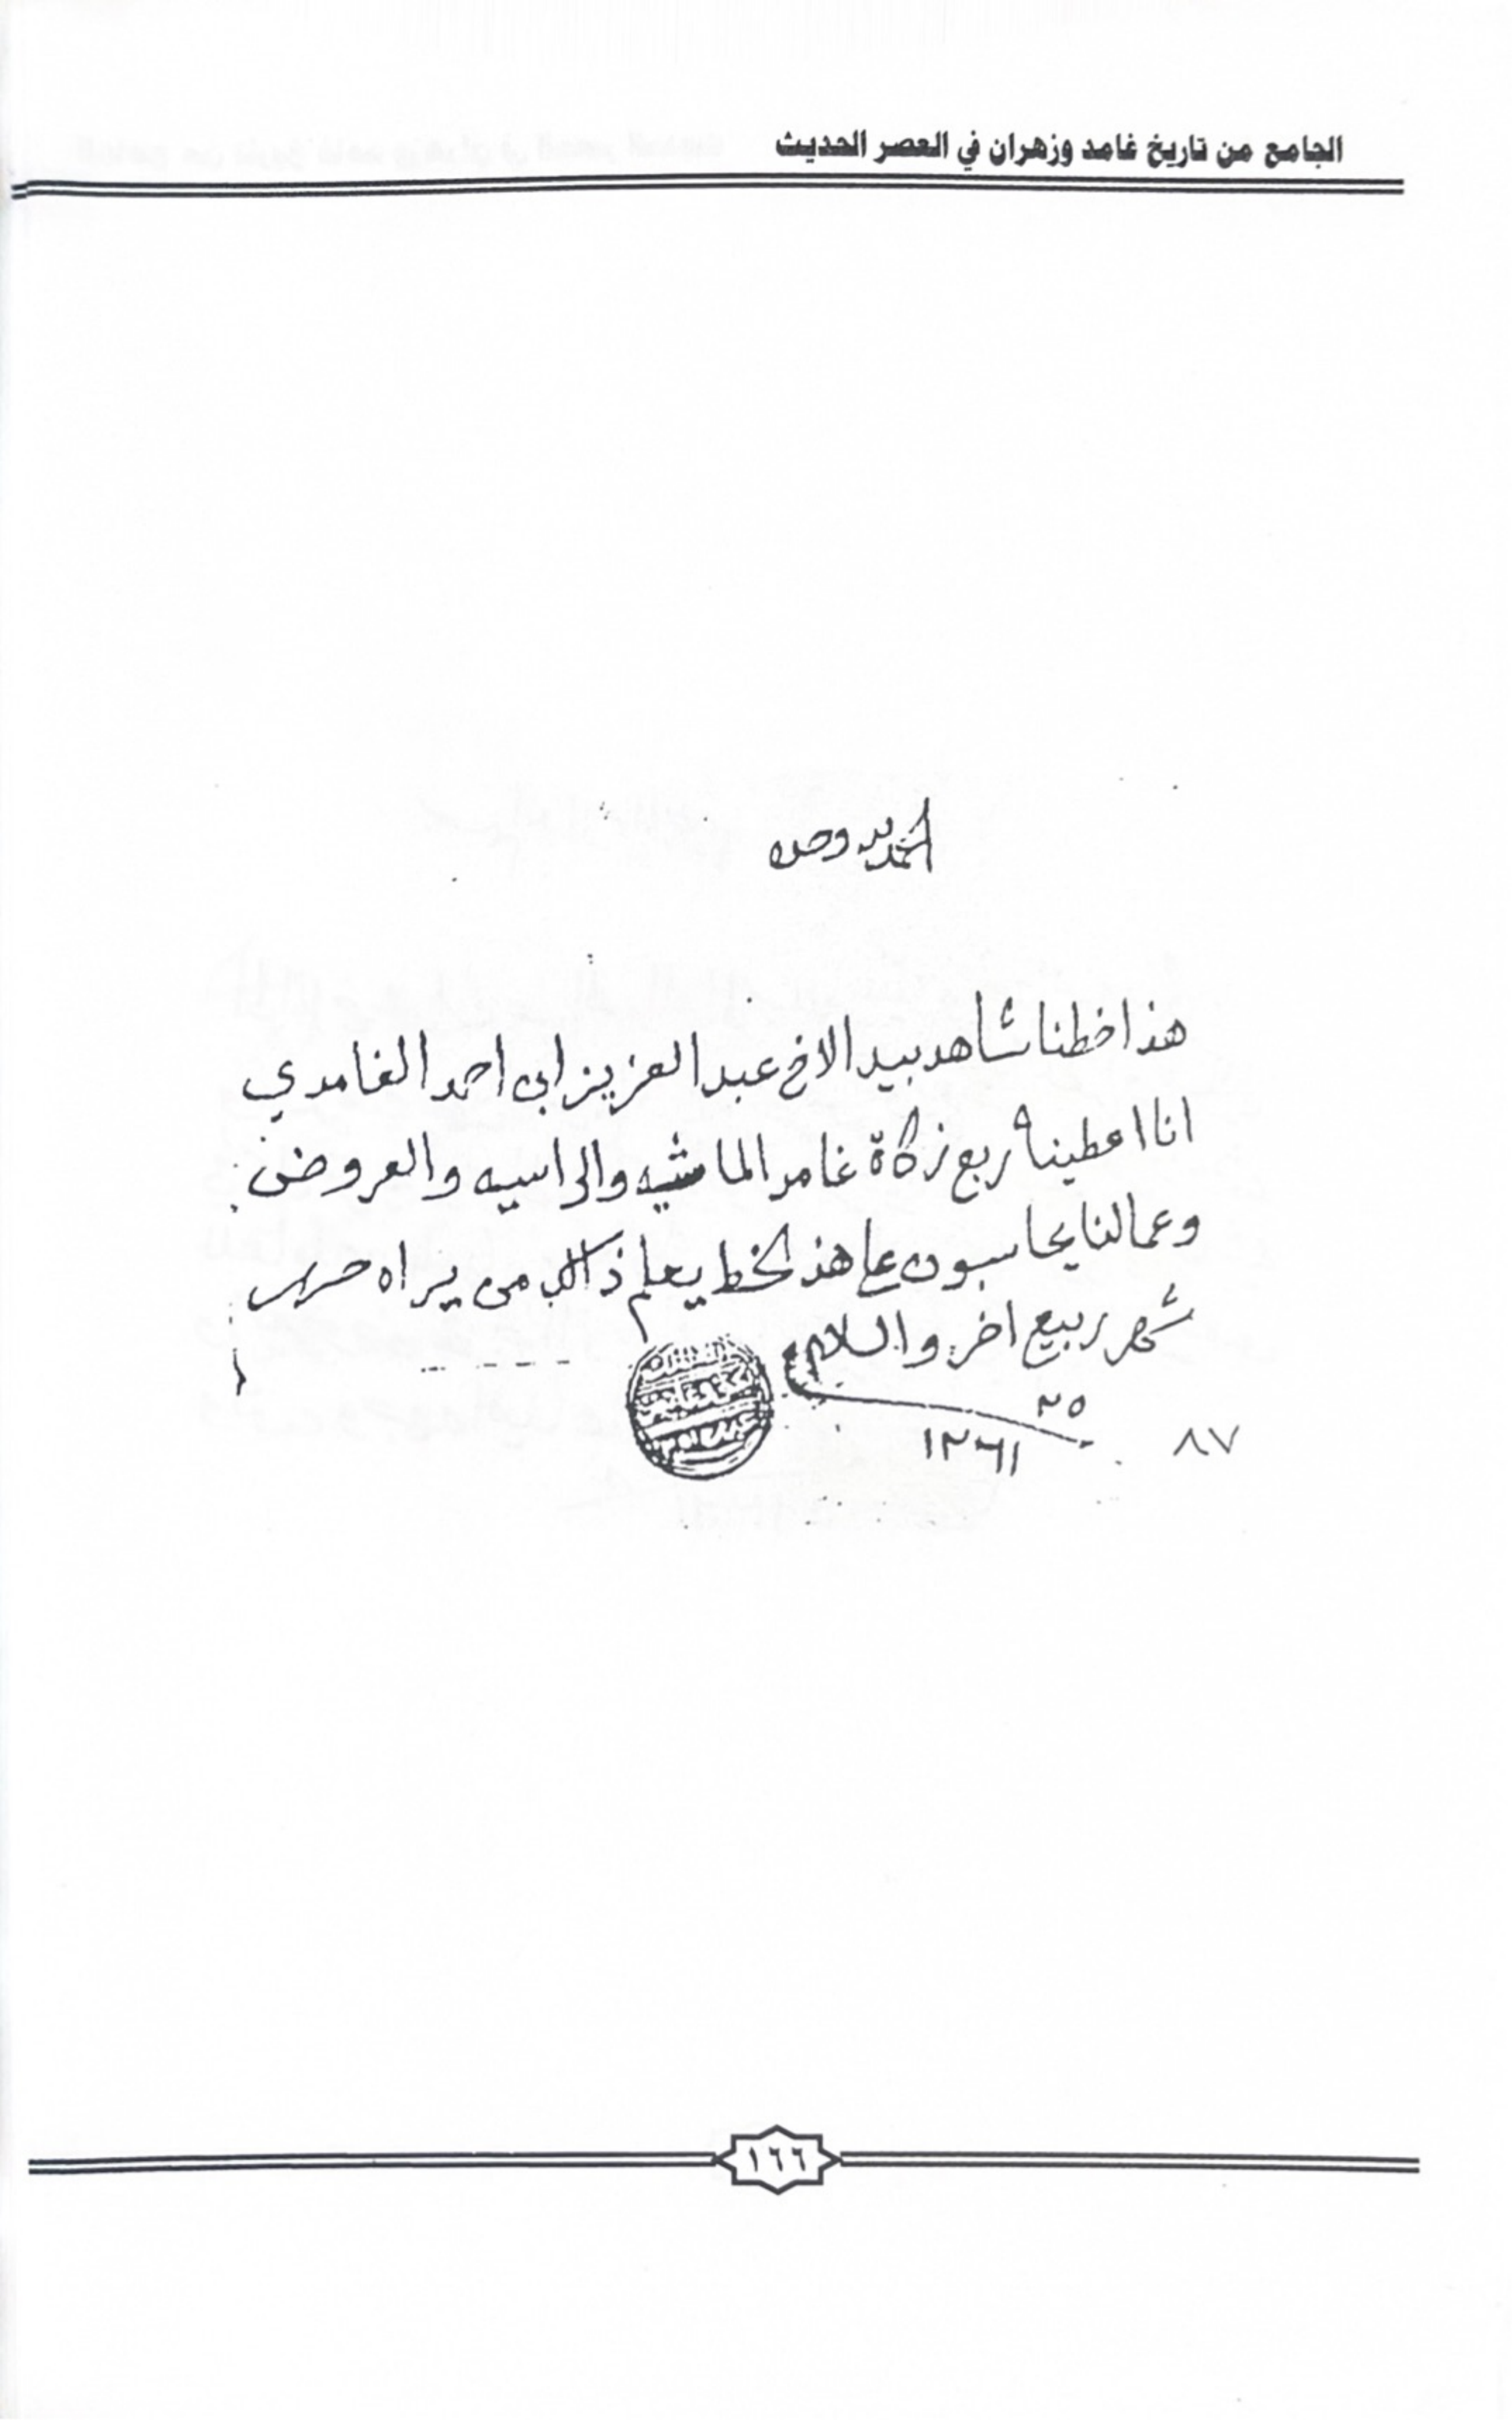 الجامع من تاريخ غامد وزهران في العصر الحديث
الحمد لله وحده
هذا خطنا شاهد بيد الاخ عبد العزيز ابن احمد الغامدي
انا اعطيناه ربع زكاة غامد الماشيه والراسيه والعروض
وعمالنا يحاسبون على هذ الخط يعلم ذالك من يراه حرر
شهر ربيع اخر والسلام
٢٥
١٢٦١
٨٧
١٦٦